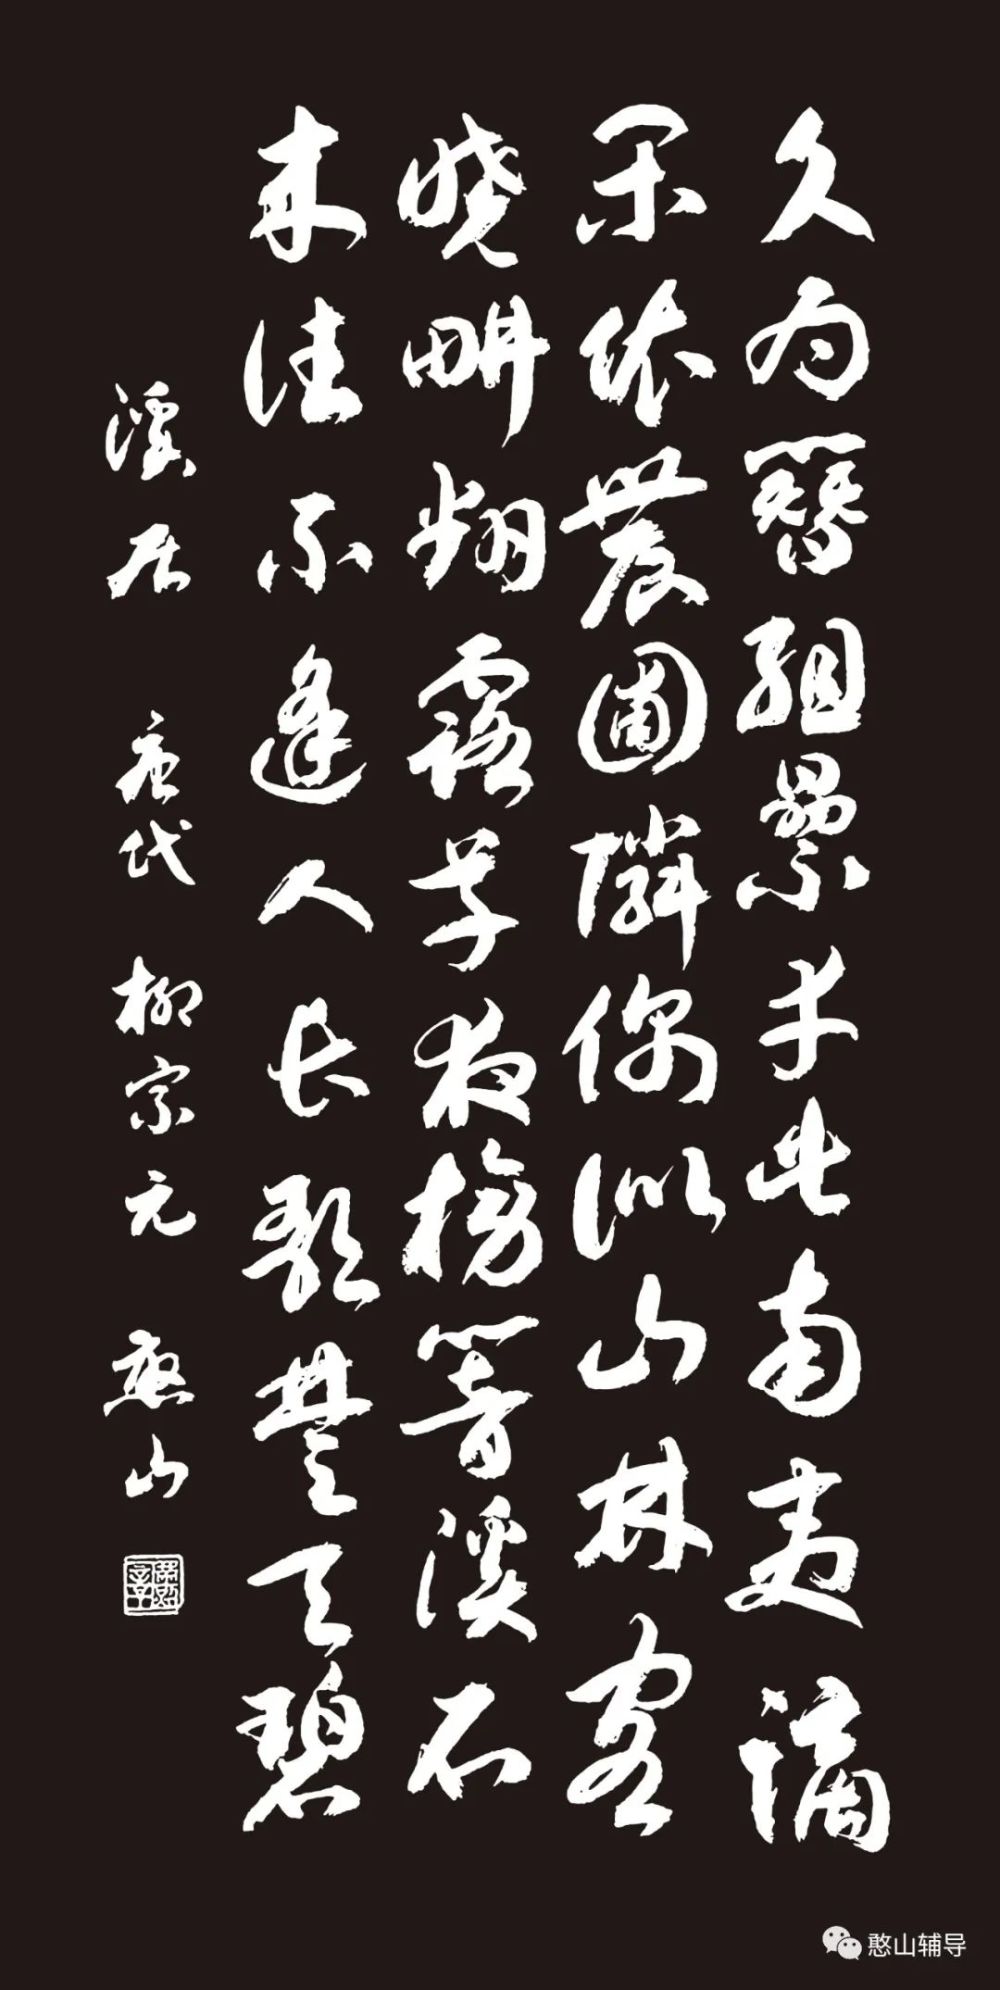 久为簪组纍幸此南夷谪
闲依農圃隣偶似山林客
晓畊翻露草夜榜响溪石
来往不逢人长歌楚天碧
溪居 唐代 柳宗元 憨山
憨山辅导